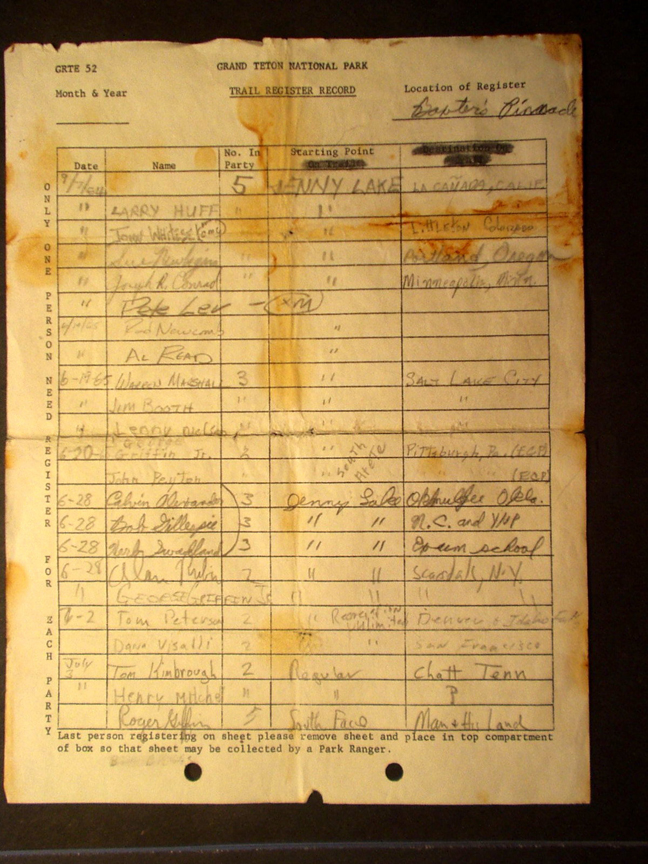 GRTE 52 GRAND TETON NATIONAL PARK
Month & Year TRAIL REGISTER RECORD Location of Register
Baxter's Pinnacle
Date Name No. In Party Starting Point
5 JENNY LAKE LA CAÑADA, CALIF.
" LARRY HUFF " "
" John " " Littleton Colorado
" " " Portland Oregon
" Joseph R. Conrad " " Minneapolis, Minn.
" Pete Lev - (XM)
Newcomb "
" AL READ "
6-1965 WARREN MARSHALL 3 " SALT LAKE CITY
" JIM BOOTH " "
" Lenny Nielson " " "
George
6-20 Griffin Jr. 2 " SOUTH ARETE Pittsburgh, Pa. (ECP)
John Peyton " (ECP)
6-28 Calvin Alexander 3 Jenny Lake Okmulgee Okla.
6-28 Bob Gillespie 3 " " N.C. and YNP
6-28 Herb Swedlund 3 " " Exum school
6-28 2 " " Scarsdale, N.Y.
" GEORGE GRIFFIN JR " " " "
6-2 Tom Peterson 2 " Recreation Unlimited Denver & Idaho Falls
Dana Visalli 2 " " San Francisco
July 3 Tom Kimbrough 2 Regular Chatt Tenn
" HENRY Mitchel " " " ?
Roger 5 South Face Man & His Land
ONLY ONE PERSON NEED REGISTER FOR EACH PARTY
Last person registering on sheet please remove sheet and place in top compartment
of box so that sheet may be collected by a Park Ranger.